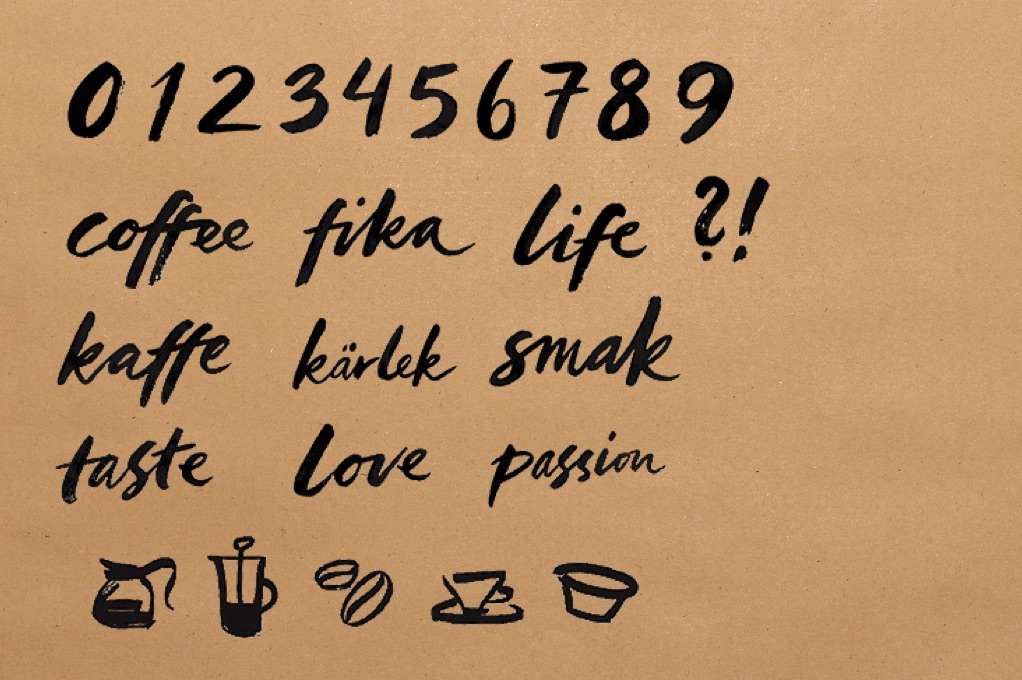 0 1 2 3 4 5 6 7 8 9
coffee fika life ?!
kaffe kärlek smak
taste love passion